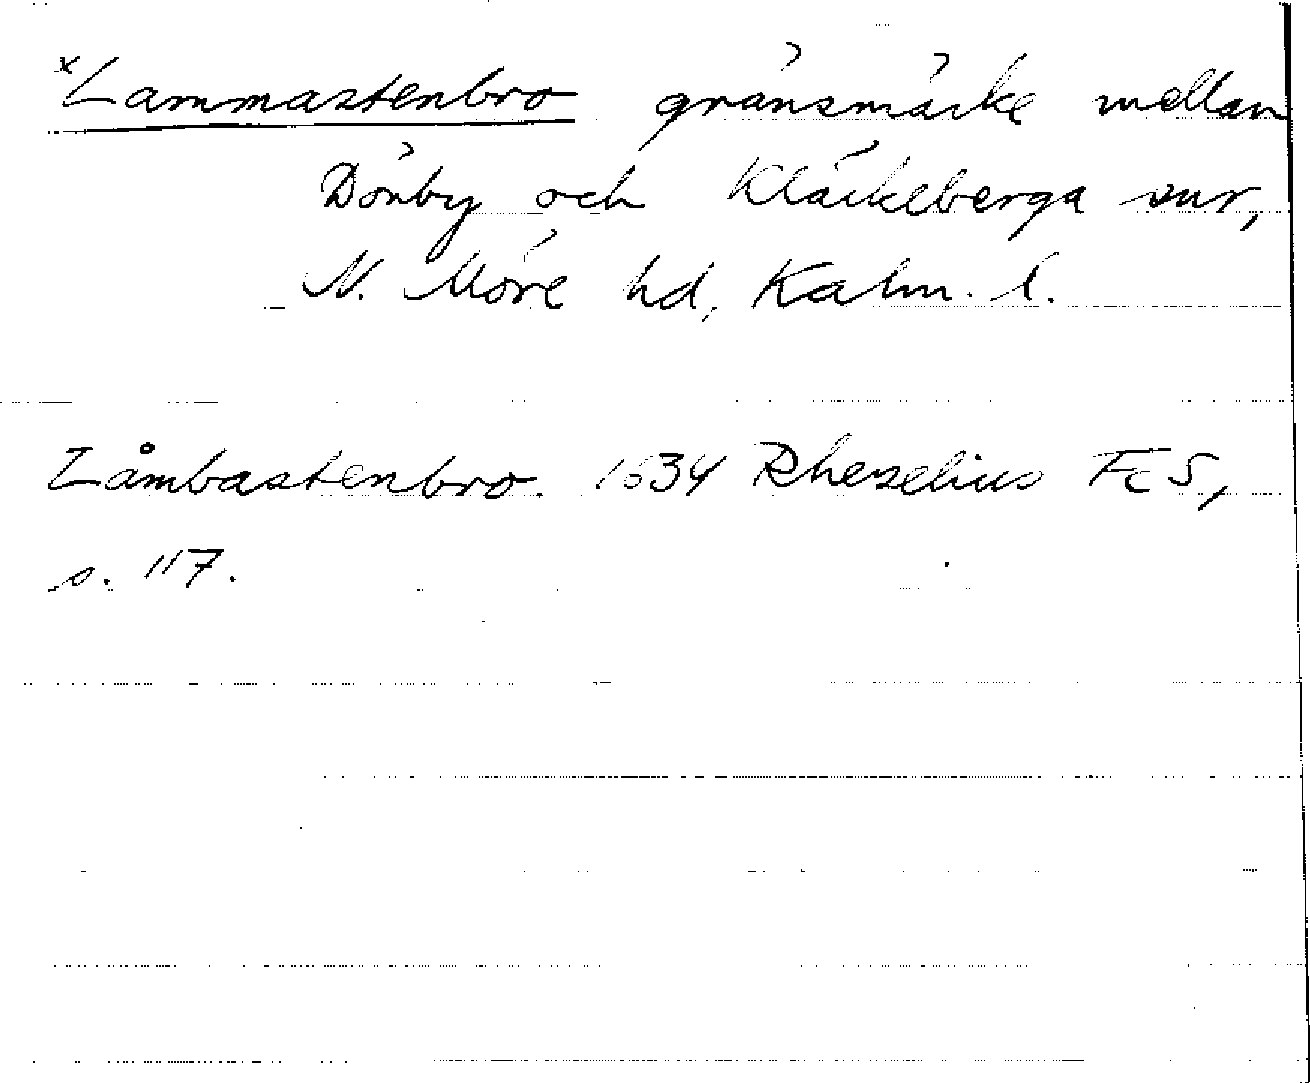 ×Lammastenbro gränsmärke mellan
Dörby och Kläckeberga snr,
N. Möre hd, Kalm. l.
Låmbastenbro. 1634 Rhezelius FcS,
s. 117.